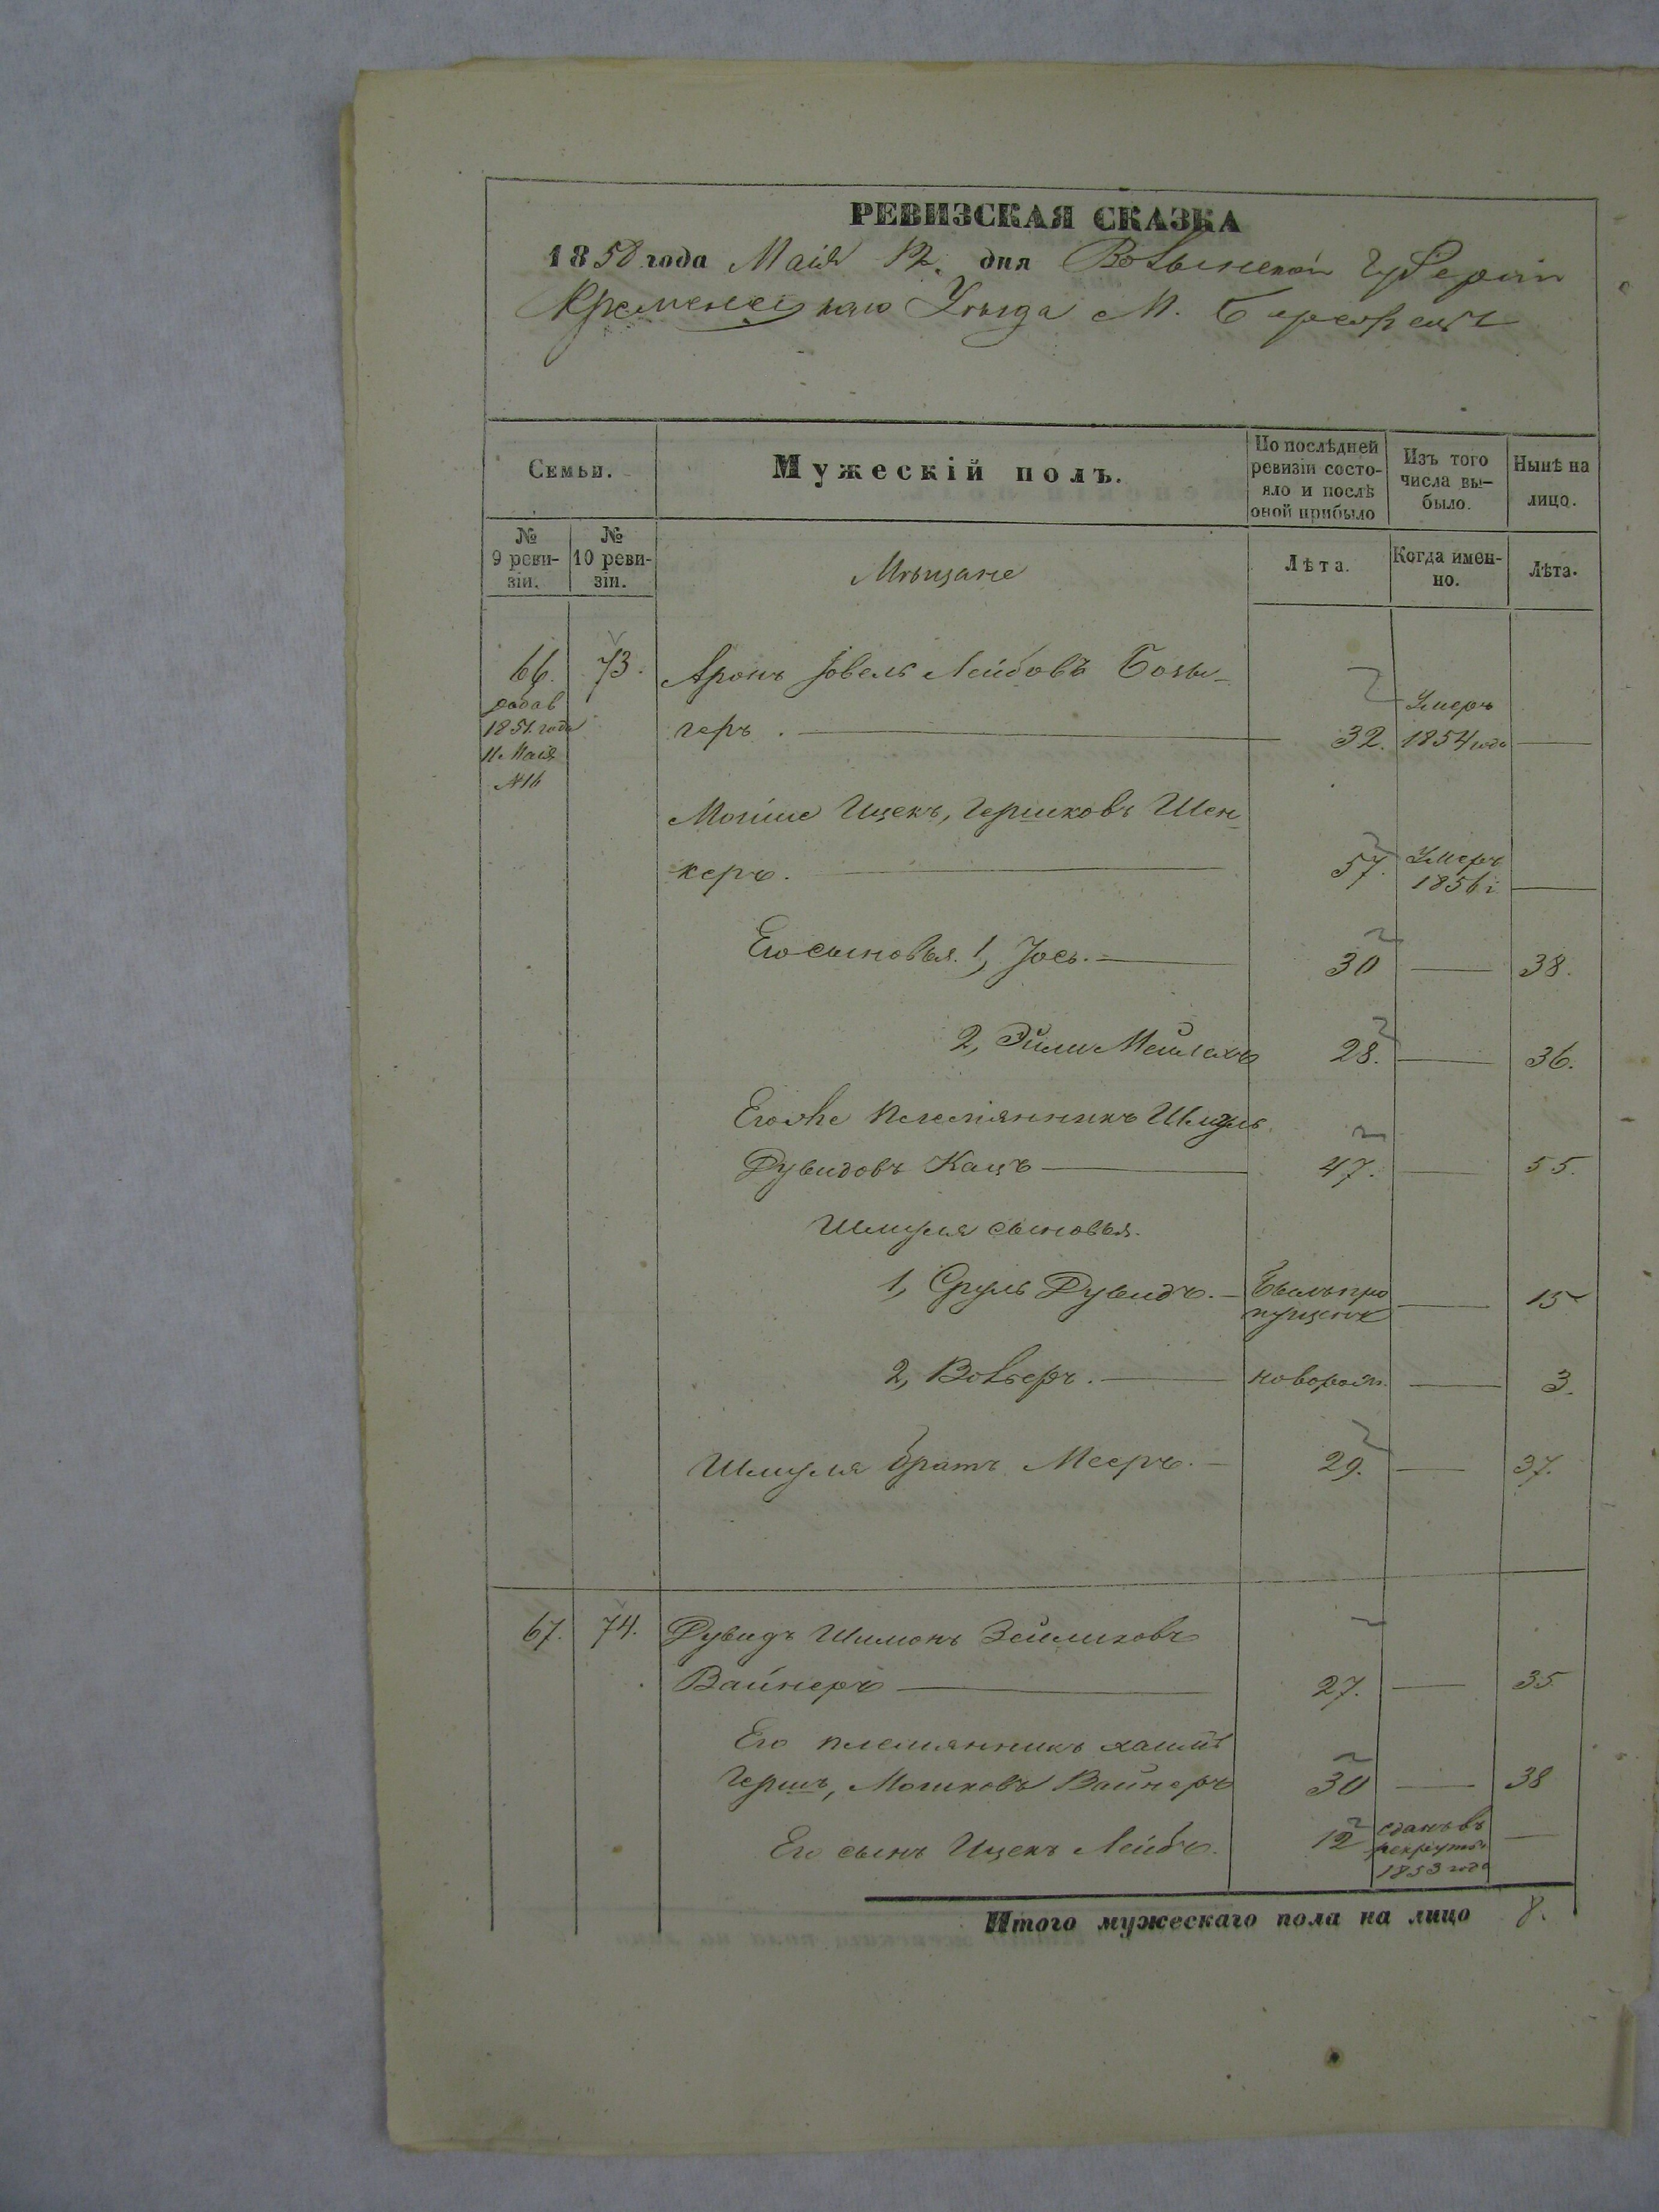 РЕВИЗСКАЯ СКАЗКА
1858 года Маія 12. дня Волынской Губерніи
Кременецкаго Уѣзда М. Бережецъ
Семьи.
Мужескій полъ.
По послѣдней ревизіи состояло и послѣ оной прибыло
Изъ того числа вы-было.
Нынѣ на лицо.
№ 9 реви-зіи.
№ 10 реви-зіи.
Мѣщане
Лѣта.
Когда имен-но.
Лѣта.
66. 73. Аронъ Іовель Лейбовъ
Умеръ
1851. года
геръ. 32. 1854 года
11 Маія
№16
Мошше Ицекъ, Гершковъ Шен-
керъ. 57. Умеръ 1856 г.
Его сыновья. 1, Іось. 30 38.
2, Эйли Мейлехъ 28. 36.
Егоже племянникъ Шмуль
Дувидовъ Кацъ 47. 55.
Шмуля сыновья.
1, Сруль Дувидъ. Былъ пропущенъ 15
2, Вольеръ. новорож. 3.
Шмуля братъ Мееръ. 29. 37.
67. 74. Дувидъ Шимонъ Зейликовъ
Вайнеръ 27. 35
Его племянникъ Хаимъ
Гершъ, Мошковъ Вайнеръ 30 38
Его сынъ Ицекъ Лейбъ. 12 сданъ въ рекруты 1853 года
Итого мужескаго пола на лицо 8.